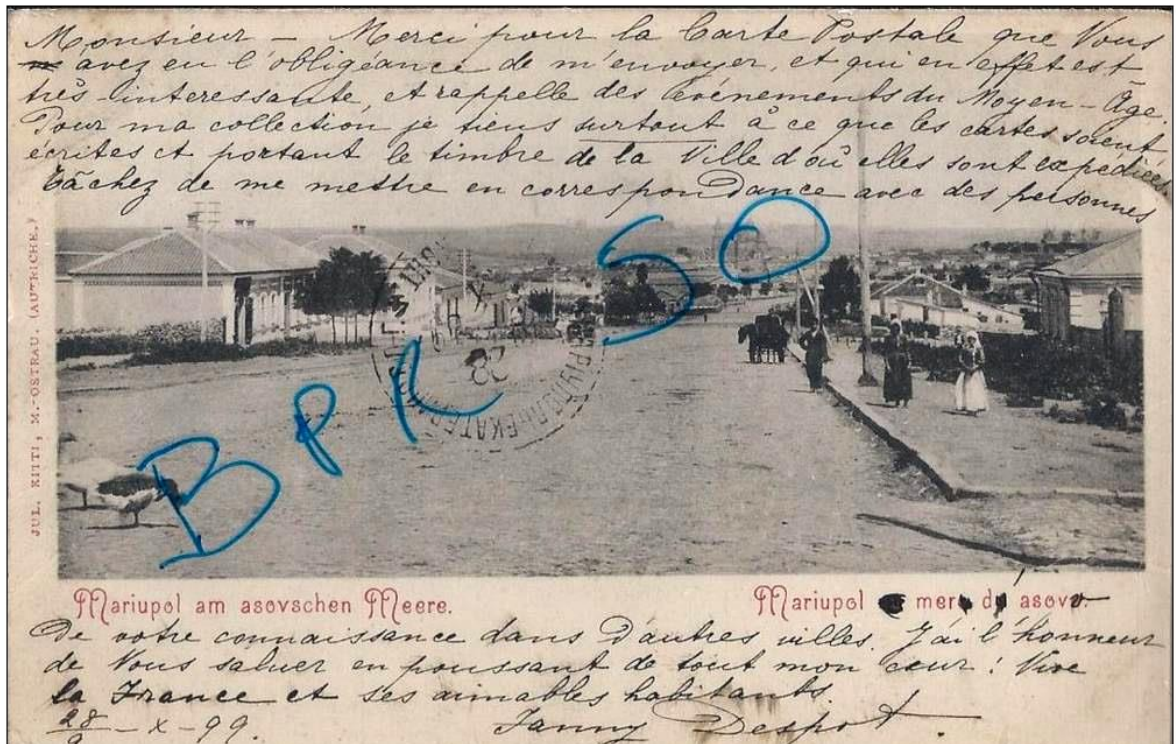 Monsieur – Merci pour la Carte Postale que Vous
m'avez eu l'obligeance de m'envoyer, et qui en effet est
très-interessante, et rappelle des événements du Moyen-Âge
Pour ma collection je tiens surtout à ce que les cartes soient
écrites et portant le timbre de la Ville d'où elles sont expédiées.
Tâchez de me mettre en correspondance avec des personnes
JUL. KITTI, M.-OSTRAU. (AUTRICHE.)
BPK SO
28
Mariupol am asovschen Meere.
Mariupol mer d' asov
De votre connaissance dans d'autres villes. J'ai l'honneur
de Vous saluer en poussant de tout mon cœur: Vive
la France et ses aimables habitants.
28 – X – 99.
Janny Despot